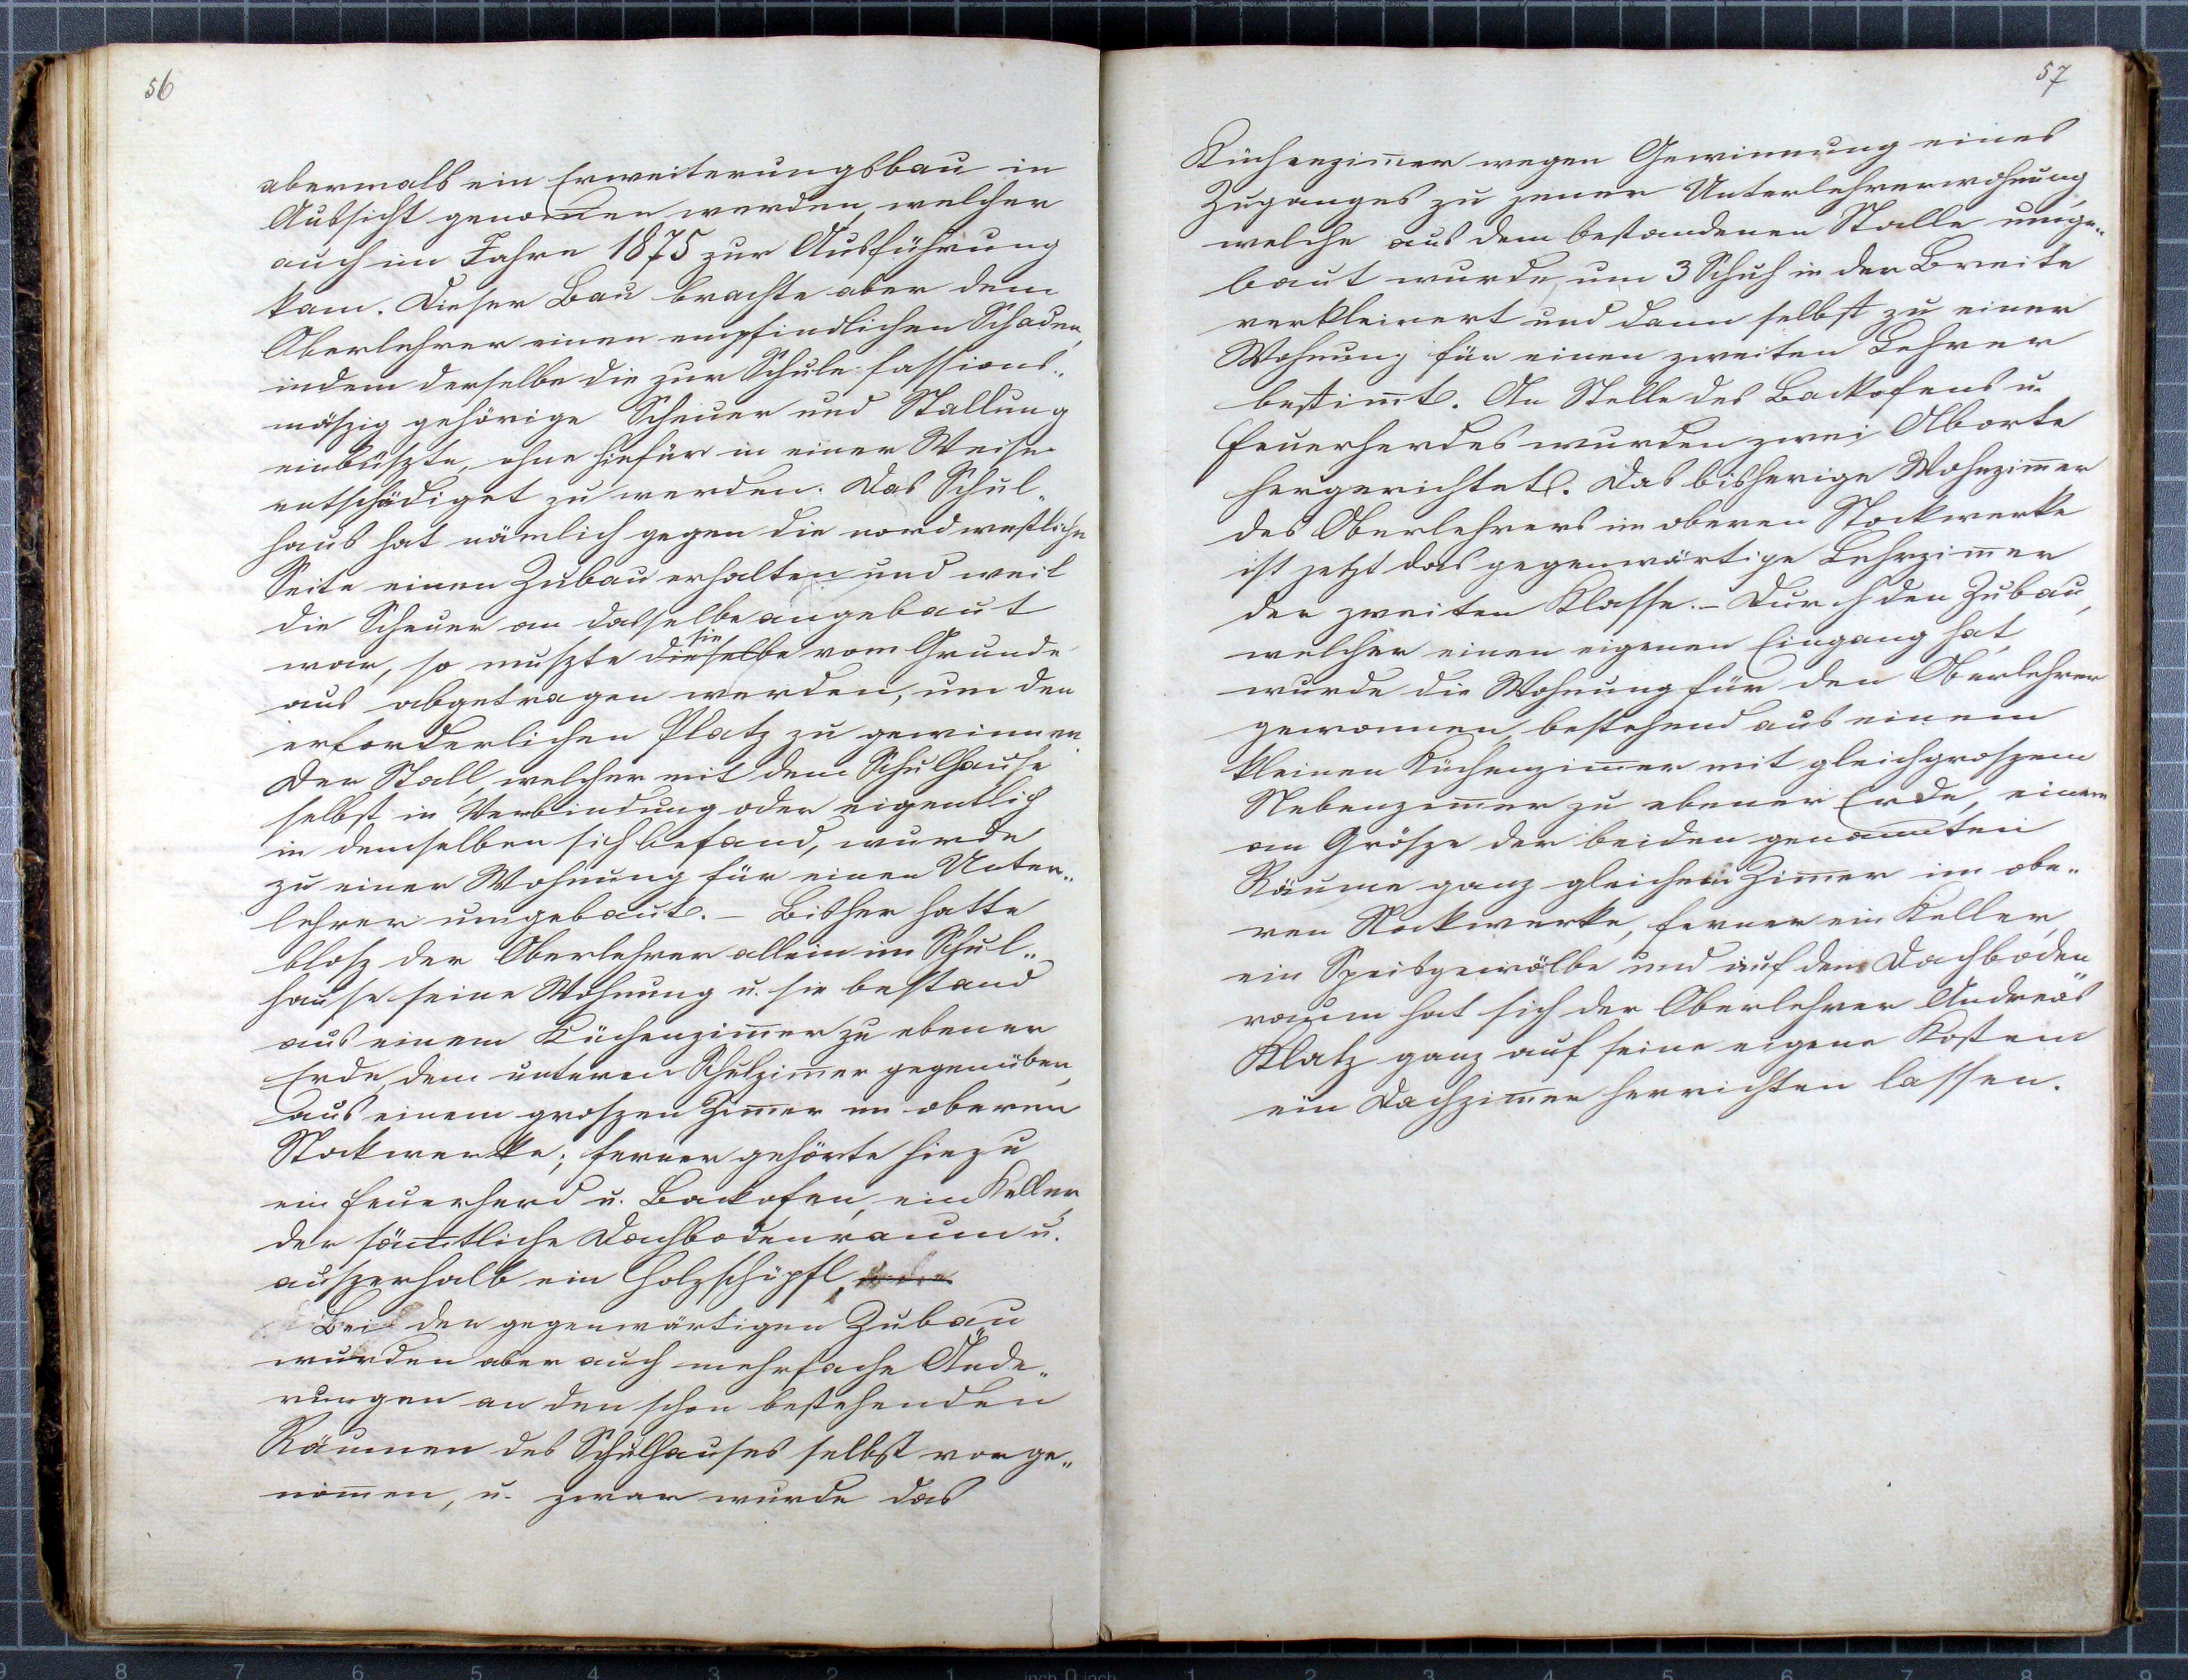 56
abermals ein Erweiterungsbau in
Aussicht genom̅en werden, welcher
auch im Jahre 1875 zur Ausführung
kam. Dieser Bau brachte aber dem
Oberlehrer einen empfindlichen Schaden,
indem derselbe die zur Schule fassions-
mäszig gehörige Scheuer und Stallung
einbüszte, ohne hiefür in einer Weise
entschädiget zu werden. Das Schul-
haus hat nämlich gegen die nordwestliche
Seite einen Zubau erhalten und weil
die Scheuer an dasselbe angebaut
sie
war, so muszte dieselbe vom Grunde
aus abgetragen werden, um den
erforderlichen Platz zu gewinnen.
Der Stall, welcher mit dem Schulhause
selbst in Verbindung oder eigentlich
in demselben sich befand, wurde
zu einer Wohnung für einen Unter-
lehrer umgebaut. – Bisher hatte
blosz der Oberlehrer allein im Schul-
hause seine Wohnung u. sie bestand
aus einem Küchenzim̅er zu ebener
Erde, dem unteren Schulzim̅er gegenüber,
aus einem groszen Zim̅er im oberen
Stockwerke; ferner gehörte hiezu
ein Feuerherd u. Backofen, ein Keller,
der säm̅tliche Dachbodenraum u.
auszerhalb ein Holzschüpfl,
Bei den gegenwärtigen Zubau
wurden aber auch mehrfache Ände-
rungen an den schon bestehenden
Räumen des Schulhauses selbst vorge-
nom̅en, u. zwar wurde das
57
Küchenzim̅er wegen Gewinnung eines
Zuganges zu jener Unterlehrerwohnung,
welche aus dem bestandenen Stalle umge-
baut wurde, um 3 Schuh in der Breite
verkleinert und dann selbst zu einer
Wohnung für einen zweiten Lehrer
bestim̅t. An Stelle des Backofens u.
Feuerherdes wurden zwei Aborte
hergerichtet. Das bisherige Wohnzim̅er
des Oberlehrers im oberen Stockwerke
ist jetzt das gegenwärtige Lehrzim̅er
der zweiten Klasse. – Durch den Zubau,
welcher einen eigenen Eingang hat,
wurde die Wohnung für den Oberlehrer
gewonnen, bestehend aus einem
kleinen Küchenzim̅er mit gleichgroszem
Nebenzim̅er zu ebener Erde, einem
an Grösze der beiden genannten
Räume ganz gleichem Zim̅er im obe-
ren Stockwerke, ferner ein Keller,
ein Speisgewölbe und auf dem Dachboden
raum hat sich der Oberlehrer Andreas
Klatz ganz auf seine eigene Kosten
ein Dachzim̅er herrichten lassen.